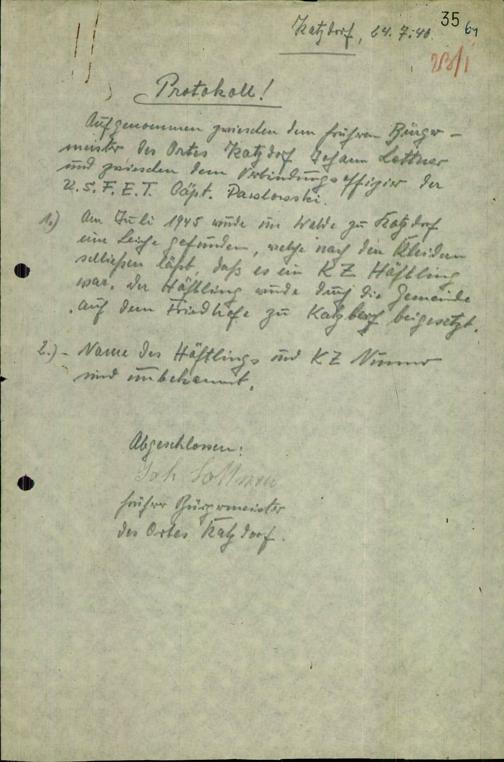 35
61
Katzdorf, 64.7.46
2B/1
Protokoll!
Aufgenommen zwieschen dem frühren Bürger-
meister des Ortes Katzdorf Johann Lettner
und zwieschen dem Verbindungsoffizier der
U.S.F.E.T. Cäpt. Pawlowski.
1.) Am Juli 1945 wurde im Walde zu Katzdorf
eine Leiche gefunden, welche nach den Kleidern
schließen läßt, daß es ein KZ Häftling
war. Der Häftling wurde durch die Gemeinde
auf dem Friedhofe zu Katzdorf beigesetzt.
2.) - Name des Häftlings und KZ Nummer
sind unbekannt.
Abgeschlossen:
Joh
frührer Bürgermeister
des Ortes Katzdorf.